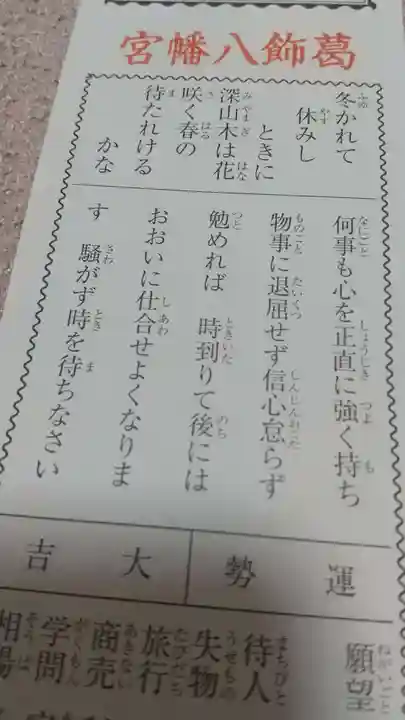 葛飾八幡宮
冬かれて
休みし
ときに
深山木は花
咲く春の
待たれける
かな
何事も心を正直に強く持ち
物事に退屈せず信心怠らず
勉めれば 時到りて後には
おおいに仕合せよくなりま
す 騒がず時を待ちなさい
運勢 大吉
願望
待人
失物
旅行
商売
学問
相場